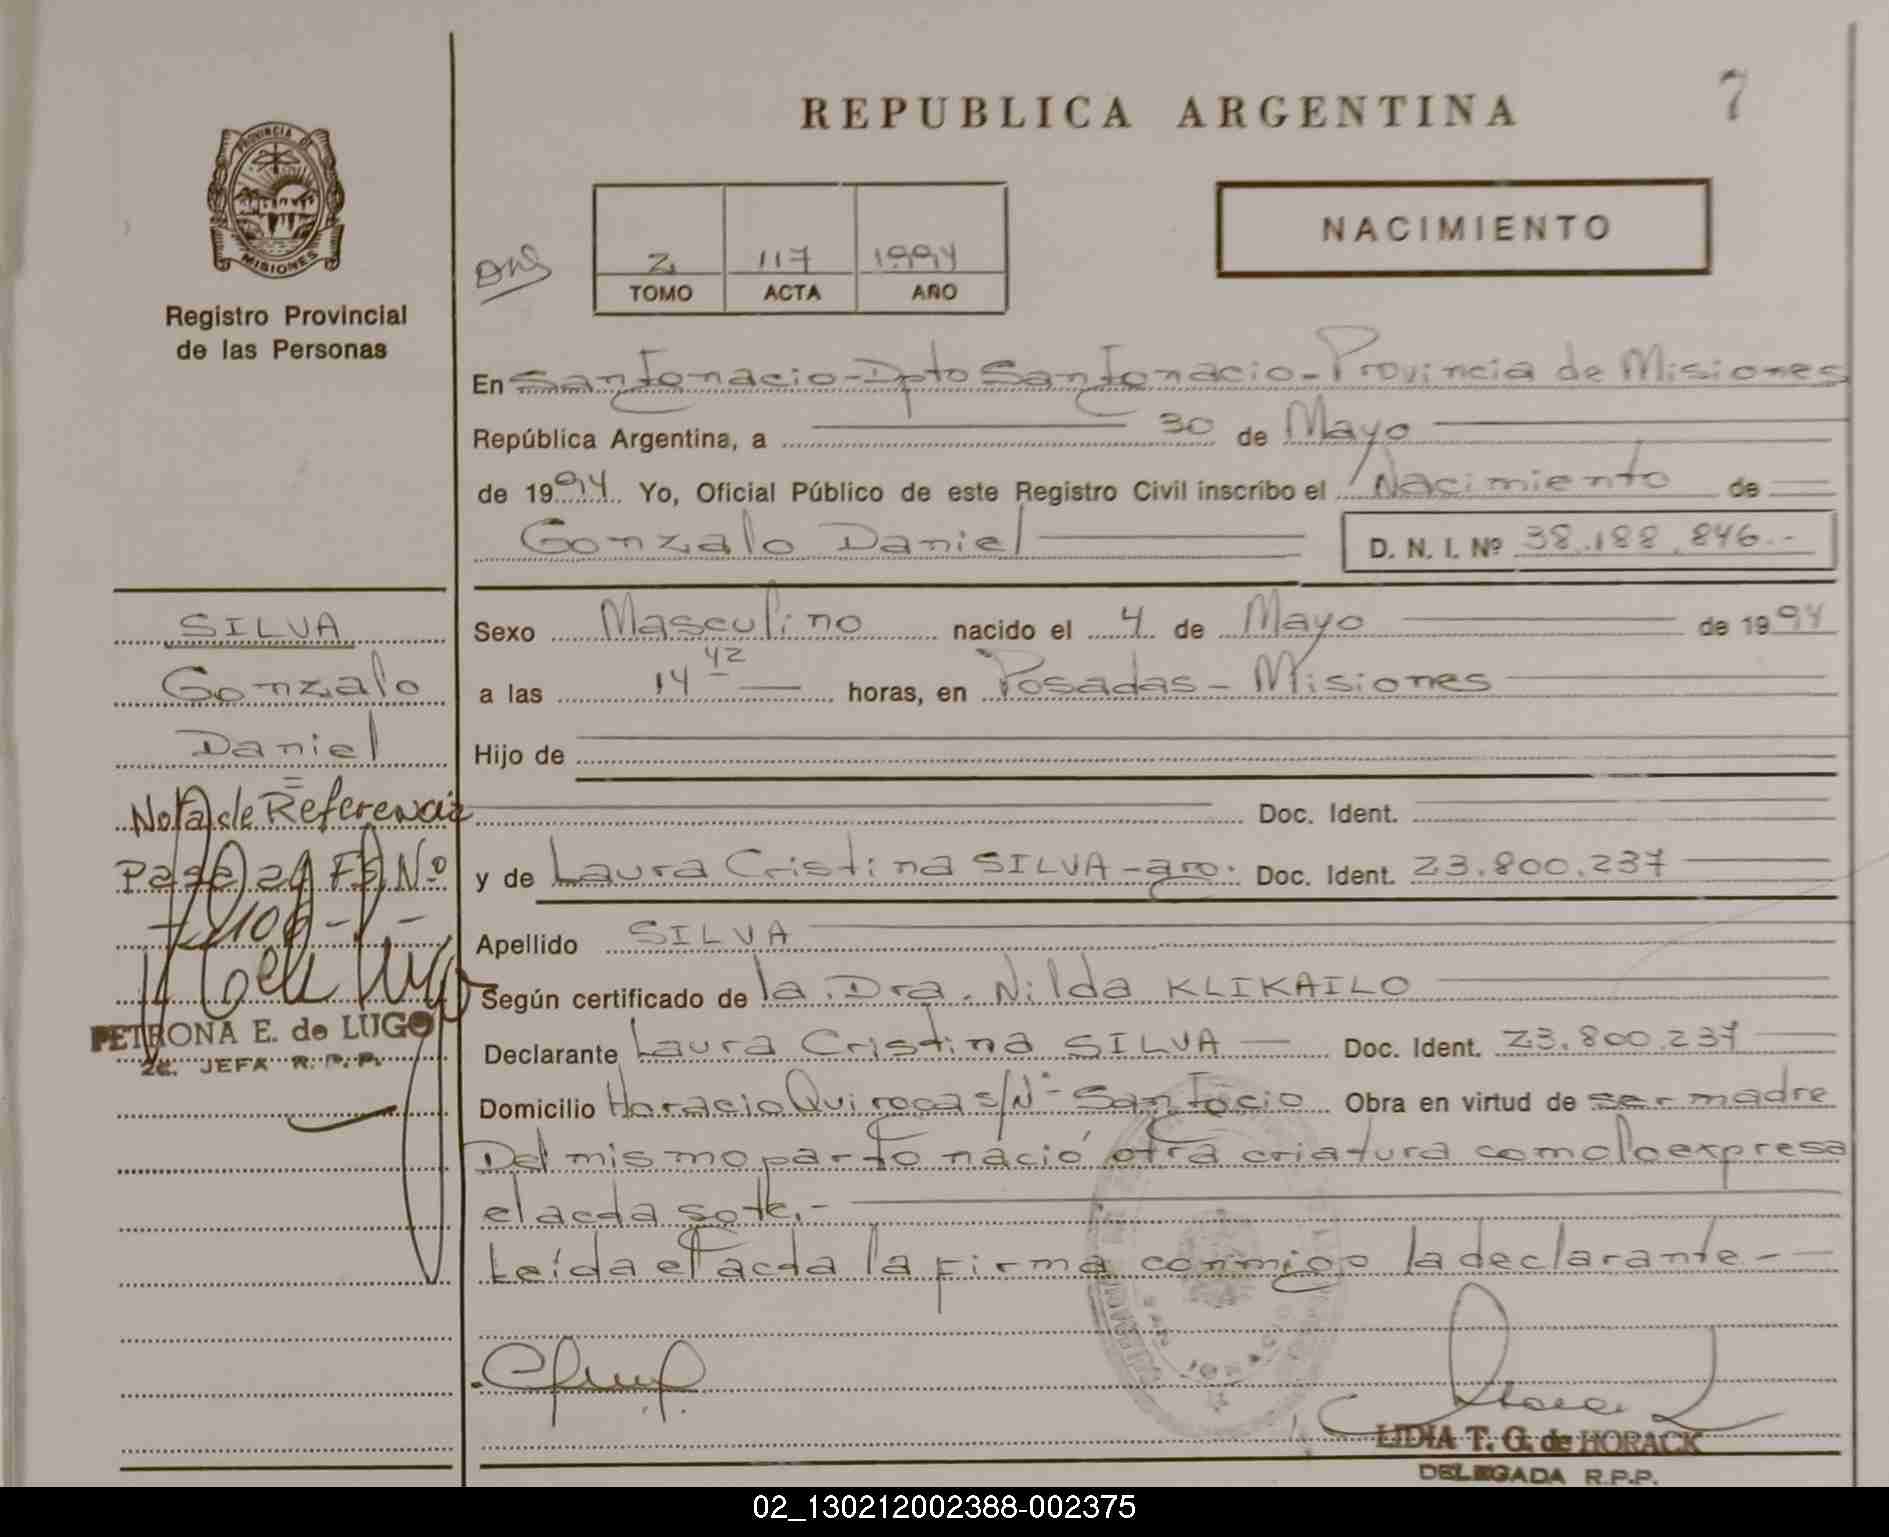 7
REPUBLICA ARGENTINA
PROVINCIA DE
MISIONES
Registro Provincial
de las Personas
NACIMIENTO
2 117 1994
TOMO ACTA AÑO
En San Ignacio - Dpto San Ignacio - Provincia de Misiones
República Argentina, a 30 de Mayo
de 1994 Yo, Oficial Público de este Registro Civil inscribo el Nacimiento de
Gonzalo Daniel D. N. I. Nº 38.188.846.-
SILVA
Gonzalo
Daniel
Nota de Referencia
Pasa al Fº Nº
106 -
PETRONA E. de LUGO
2e. JEFA R.P.P.
Sexo Masculino nacido el 4 de Mayo de 1994
a las 14 42 horas, en Posadas - Misiones
Hijo de
Doc. Ident.
y de Laura Cristina SILVA - arg. Doc. Ident. 23.800.237
Apellido SILVA
Según certificado de la Dra. Nilda KLIKAILO
Declarante Laura Cristina SILVA Doc. Ident. 23.800.237
Domicilio Horacio Quiroga s/Nº San Igcio Obra en virtud de ser madre
Del mismo parto nació otra criatura como lo expresa
el acta sgte.-
Leída el acta la firma conmigo la declarante.-
LIDIA T. G. de HORACK
DELEGADA R.P.P.
02_130212002388-002375